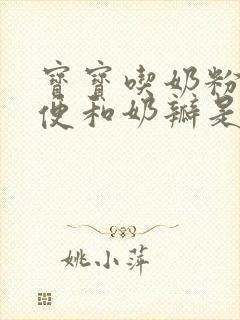 寶寶喫奶粉
便和奶瓣是
姚小萍